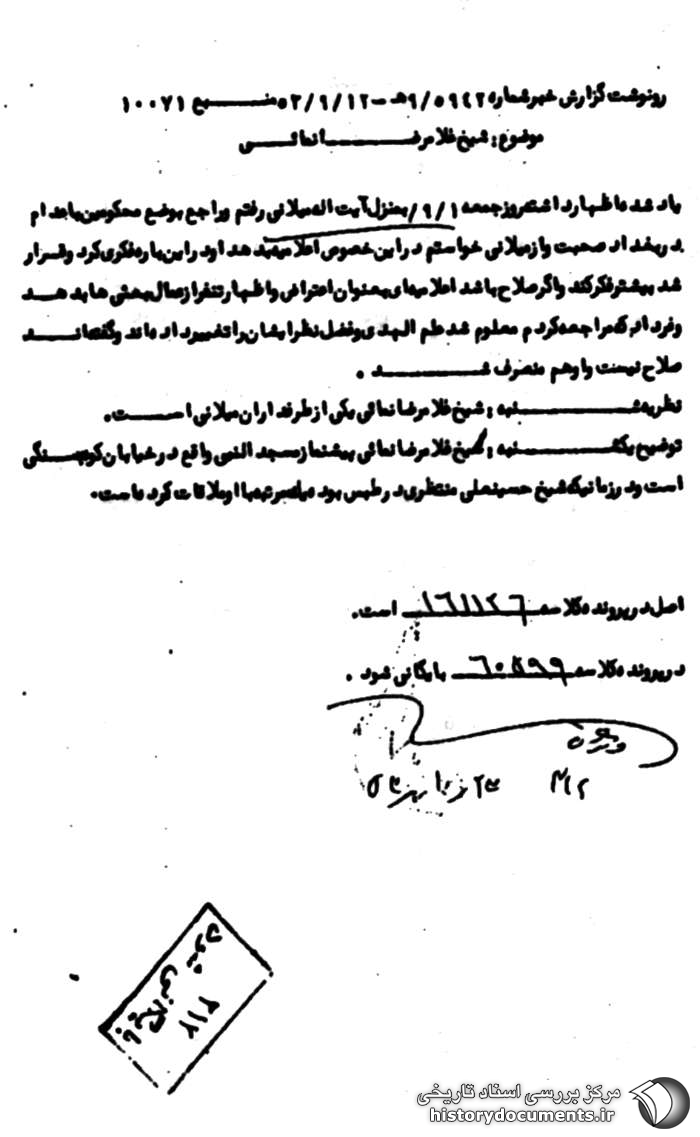 رونوشت گزارش خبر شماره ۹/۵۹۴۲هـ -۵۲/۹/۱۲ منبع ۱۰۰۷۱
موضوع: شیخ غلامرضا نمائی
یاد شده اظهار داشته روز جمعه ۹/۱/ بمنزل آیت اله میلانی رفتم و راجع بوضع محکومین باعدام
در بغداد صحبت و از میلانی خواستم در این خصوص اعلامیه بدهد او در این باره فکری کرد و قرار
شد بیشتر فکر کند و اگر صلاح باشد اعلامیه‌ای بعنوان اعتراض و اظهار تنفر از عمال بعثی ها بدهد
و فردا که مراجعه کردم معلوم شد علم الهدی و فضل نظر ایشان را تغییر داده‌اند و گفته‌اند
صلاح نیست و او هم منصرف شد.
نظریه شنبه: شیخ غلامرضا نمائی یکی از طرفداران میلانی است.
توضیح یکشنبه: شیخ غلامرضا نمائی پیشنماز مسجد النبی واقع در خیابان کوهسنگی
است و در زمانیکه شیخ حسینعلی منتظری در طبس بود مرتبه با او ملاقات کرده است.
اصل در پرونده کلاسه ۱۶۱۱۲۶ است.
در پرونده کلاسه ۶۰۵۹۹ بایگانی شود.
۳۱۲
بایگانی شود
۳۱۲
مرکز بررسی اسناد تاریخی
historydocuments.ir